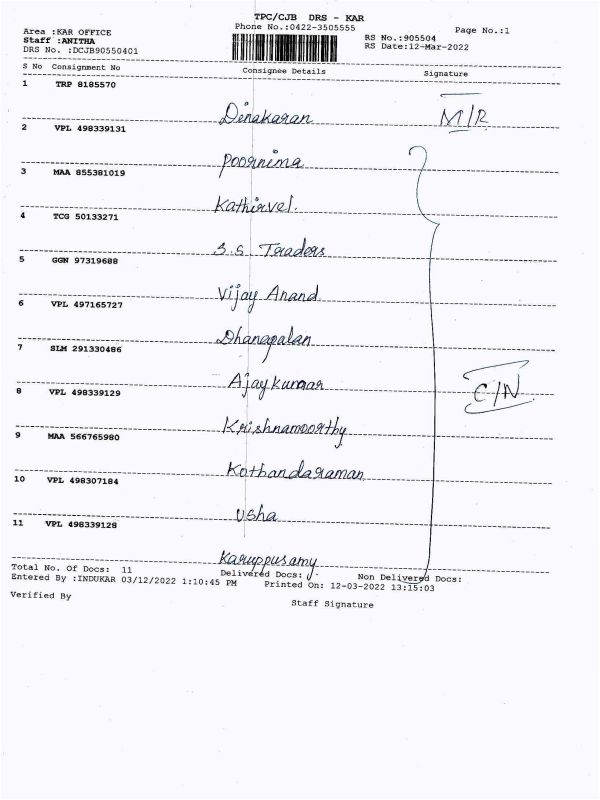 TPC/CJB DRS - KAR
Area :KAR OFFICE Phone No.:0422-3505555 Page No.:1
Staff :ANITHA RS No.:905504
DRS No. :DCJB90550401 RS Date:12-Mar-2022
S No Consignment No Consignee Details Signature
1 TRP 8185570
Dinakaran M/R
2 VPL 498339131
Poornima
3 MAA 855381019
Kathirvel.
4 TCG 50133271
S.S Traders
5 GGN 97319688
Vijay Anand
6 VPL 497165727
Dhanapalan
7 SLM 291330486
Ajay kumar
8 VPL 498339129 C/N
Krishnamoorthy
9 MAA 566765980
Kothandaraman
10 VPL 498307184
Usha
11 VPL 498339128
Karuppusamy
Total No. Of Docs: 11 Delivered Docs: Non Delivered Docs:
Entered By :INDUKAR 03/12/2022 1:10:45 PM Printed On: 12-03-2022 13:15:03
Verified By Staff Signature